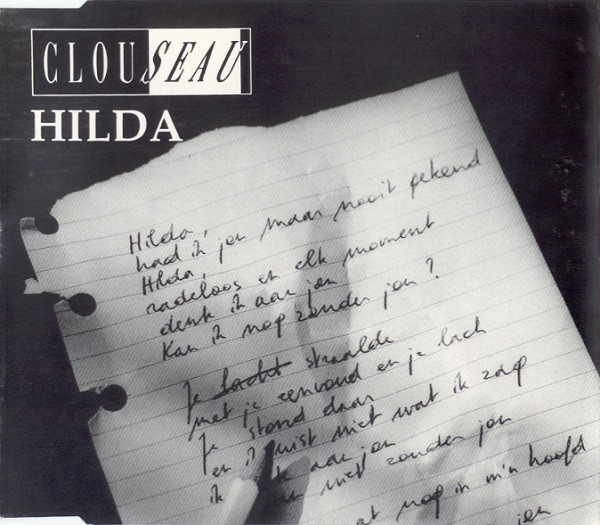 CLOUSEAU
HILDA
Hilda,
had ik jou maar nooit gekend
Hilda,
radeloos en elk moment
denk ik aan jou
Kan ik nog zonder jou?
Je lacht straalde
met je eenvoud en je lach
Je stond daar
en ik wist niet wat ik zag
ik k aan jou
an niet zonder jou
at nog in m'n hoofd
jou